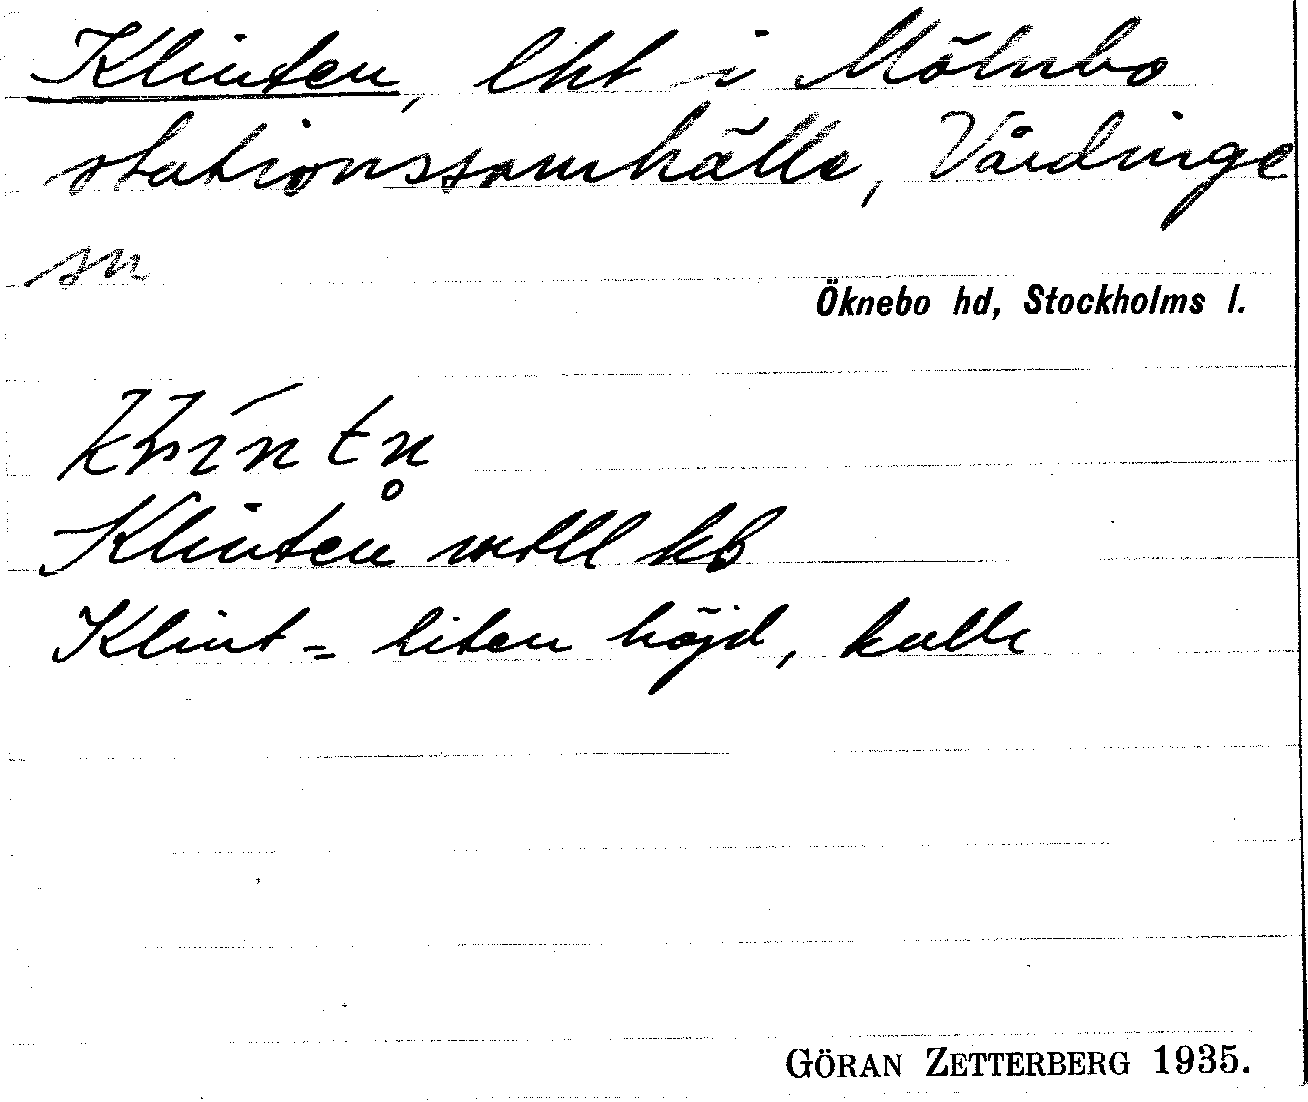 Klinten, lht i Mölnbo
stationssamhälle, Vårdinge
sn
Öknebo hd, Stockholms l.
Klinten mtll kb
Klint = liten höjd, kulle
GÖRAN ZETTERBERG 1935.